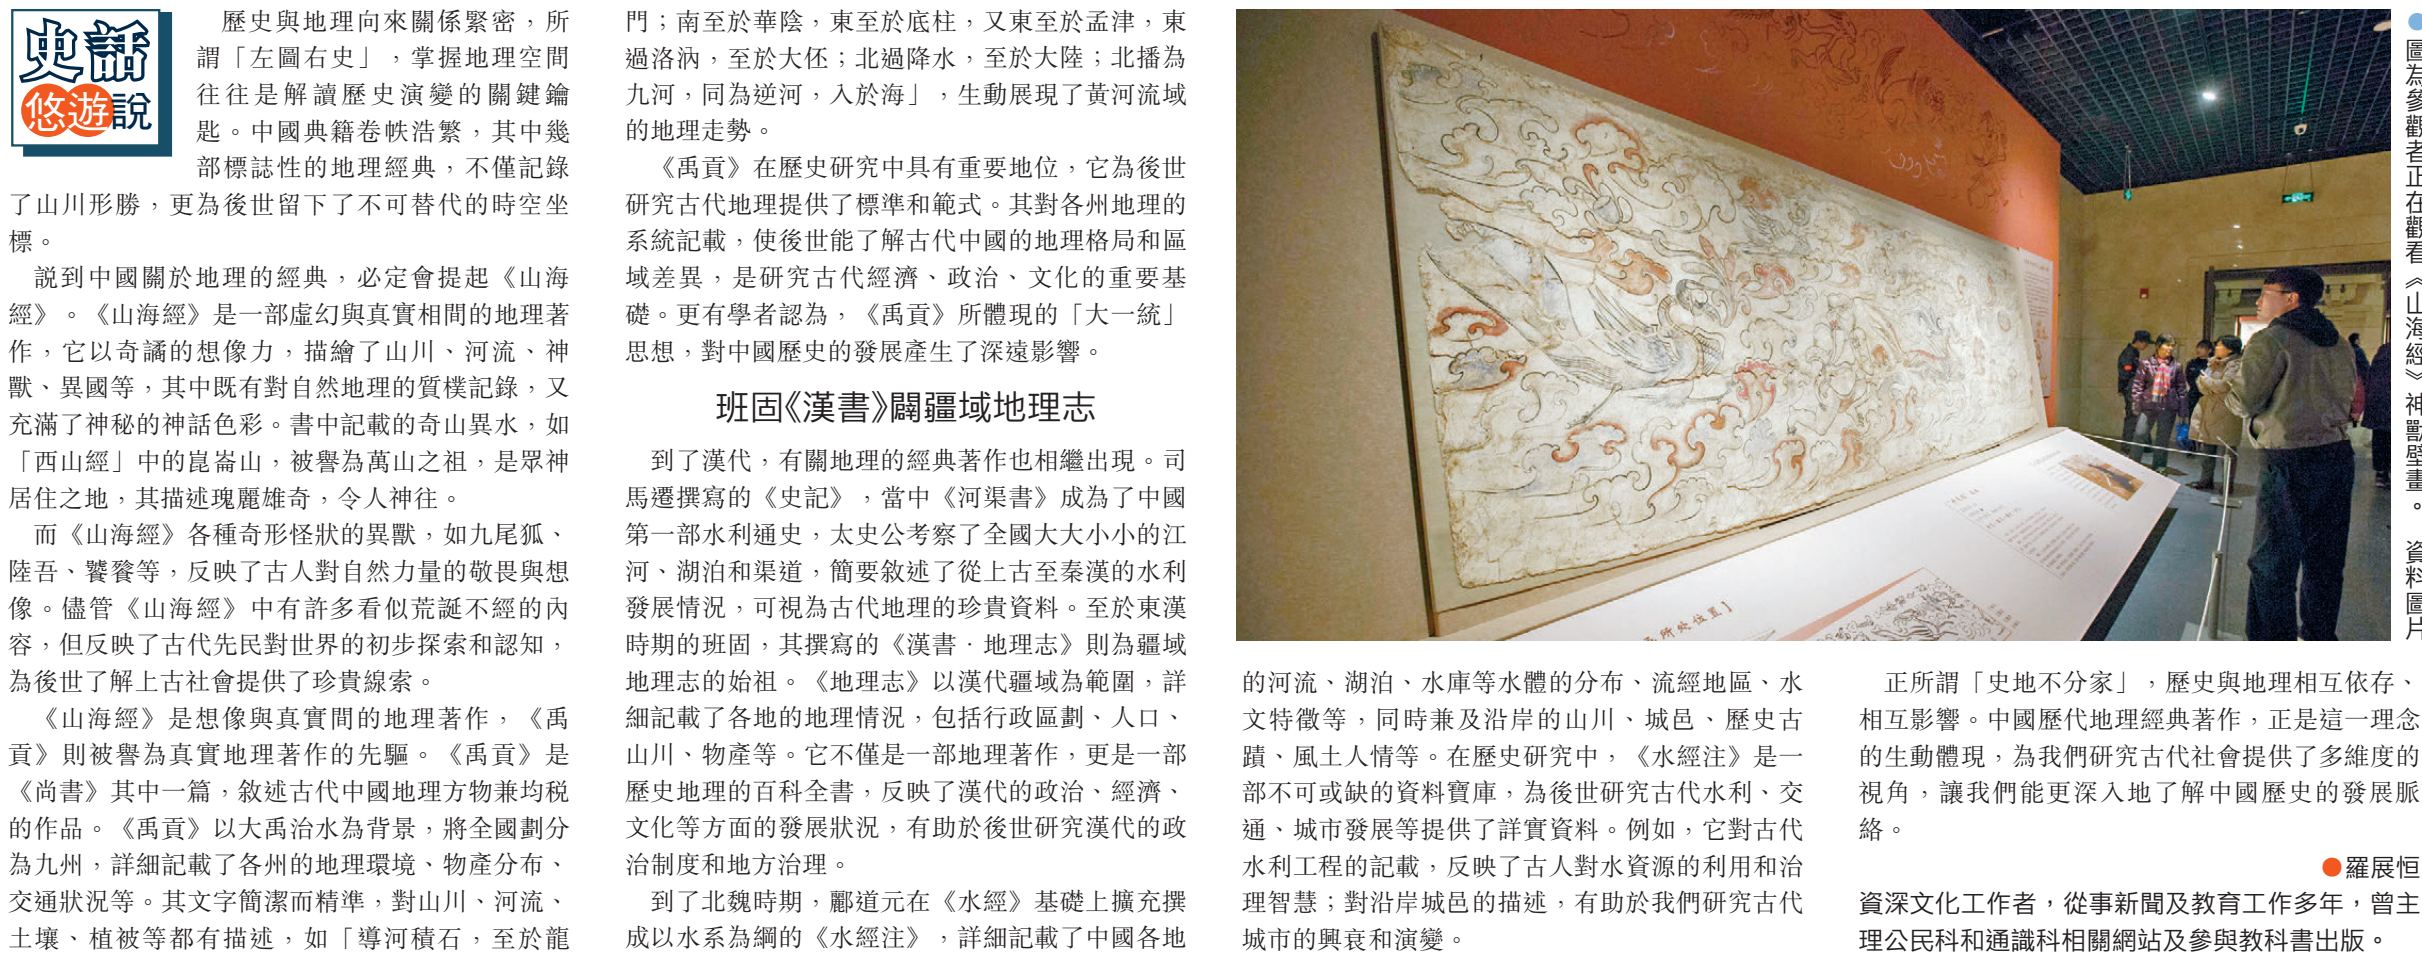 史話
悠遊說
歷史與地理向來關係緊密，所
謂「左圖右史」，掌握地理空間
往往是解讀歷史演變的關鍵鑰
匙。中國典籍卷帙浩繁，其中幾
部標誌性的地理經典，不僅記錄
了山川形勝，更為後世留下了不可替代的時空坐
標。
說到中國關於地理的經典，必定會提起《山海
經》。《山海經》是一部虛幻與真實相間的地理著
作，它以奇譎的想像力，描繪了山川、河流、神
獸、異國等，其中既有對自然地理的質樸記錄，又
充滿了神秘的神話色彩。書中記載的奇山異水，如
「西山經」中的崑崙山，被譽為萬山之祖，是眾神
居住之地，其描述瑰麗雄奇，令人神往。
而《山海經》各種奇形怪狀的異獸，如九尾狐、
陸吾、饕餮等，反映了古人對自然力量的敬畏與想
像。儘管《山海經》中有許多看似荒誕不經的內
容，但反映了古代先民對世界的初步探索和認知，
為後世了解上古社會提供了珍貴線索。
《山海經》是想像與真實間的地理著作，《禹
貢》則被譽為真實地理著作的先驅。《禹貢》是
《尚書》其中一篇，敘述古代中國地理方物兼均稅
的作品。《禹貢》以大禹治水為背景，將全國劃分
為九州，詳細記載了各州的地理環境、物產分布、
交通狀況等。其文字簡潔而精準，對山川、河流、
土壤、植被等都有描述，如「導河積石，至於龍
門；南至於華陰，東至於底柱，又東至於孟津，東
過洛汭，至於大伾；北過降水，至於大陸；北播為
九河，同為逆河，入於海」，生動展現了黃河流域
的地理走勢。
《禹貢》在歷史研究中具有重要地位，它為後世
研究古代地理提供了標準和範式。其對各州地理的
系統記載，使後世能了解古代中國的地理格局和區
域差異，是研究古代經濟、政治、文化的重要基
礎。更有學者認為，《禹貢》所體現的「大一統」
思想，對中國歷史的發展產生了深遠影響。
班固《漢書》闢疆域地理志
到了漢代，有關地理的經典著作也相繼出現。司
馬遷撰寫的《史記》，當中《河渠書》成為了中國
第一部水利通史，太史公考察了全國大大小小的江
河、湖泊和渠道，簡要敘述了從上古至秦漢的水利
發展情況，可視為古代地理的珍貴資料。至於東漢
時期的班固，其撰寫的《漢書．地理志》則為疆域
地理志的始祖。《地理志》以漢代疆域為範圍，詳
細記載了各地的地理情況，包括行政區劃、人口、
山川、物產等。它不僅是一部地理著作，更是一部
歷史地理的百科全書，反映了漢代的政治、經濟、
文化等方面的發展狀況，有助於後世研究漢代的政
治制度和地方治理。
到了北魏時期，酈道元在《水經》基礎上擴充撰
成以水系為綱的《水經注》，詳細記載了中國各地
的河流、湖泊、水庫等水體的分布、流經地區、水
文特徵等，同時兼及沿岸的山川、城邑、歷史古
蹟、風土人情等。在歷史研究中，《水經注》是一
部不可或缺的資料寶庫，為後世研究古代水利、交
通、城市發展等提供了詳實資料。例如，它對古代
水利工程的記載，反映了古人對水資源的利用和治
理智慧；對沿岸城邑的描述，有助於我們研究古代
城市的興衰和演變。
正所謂「史地不分家」，歷史與地理相互依存、
相互影響。中國歷代地理經典著作，正是這一理念
的生動體現，為我們研究古代社會提供了多維度的
視角，讓我們能更深入地了解中國歷史的發展脈
絡。
●羅展恒
資深文化工作者，從事新聞及教育工作多年，曾主
理公民科和通識科相關網站及參與教科書出版。
●圖為參觀者正在觀看《山海經》神獸壁畫。 資料圖片
所處位置】